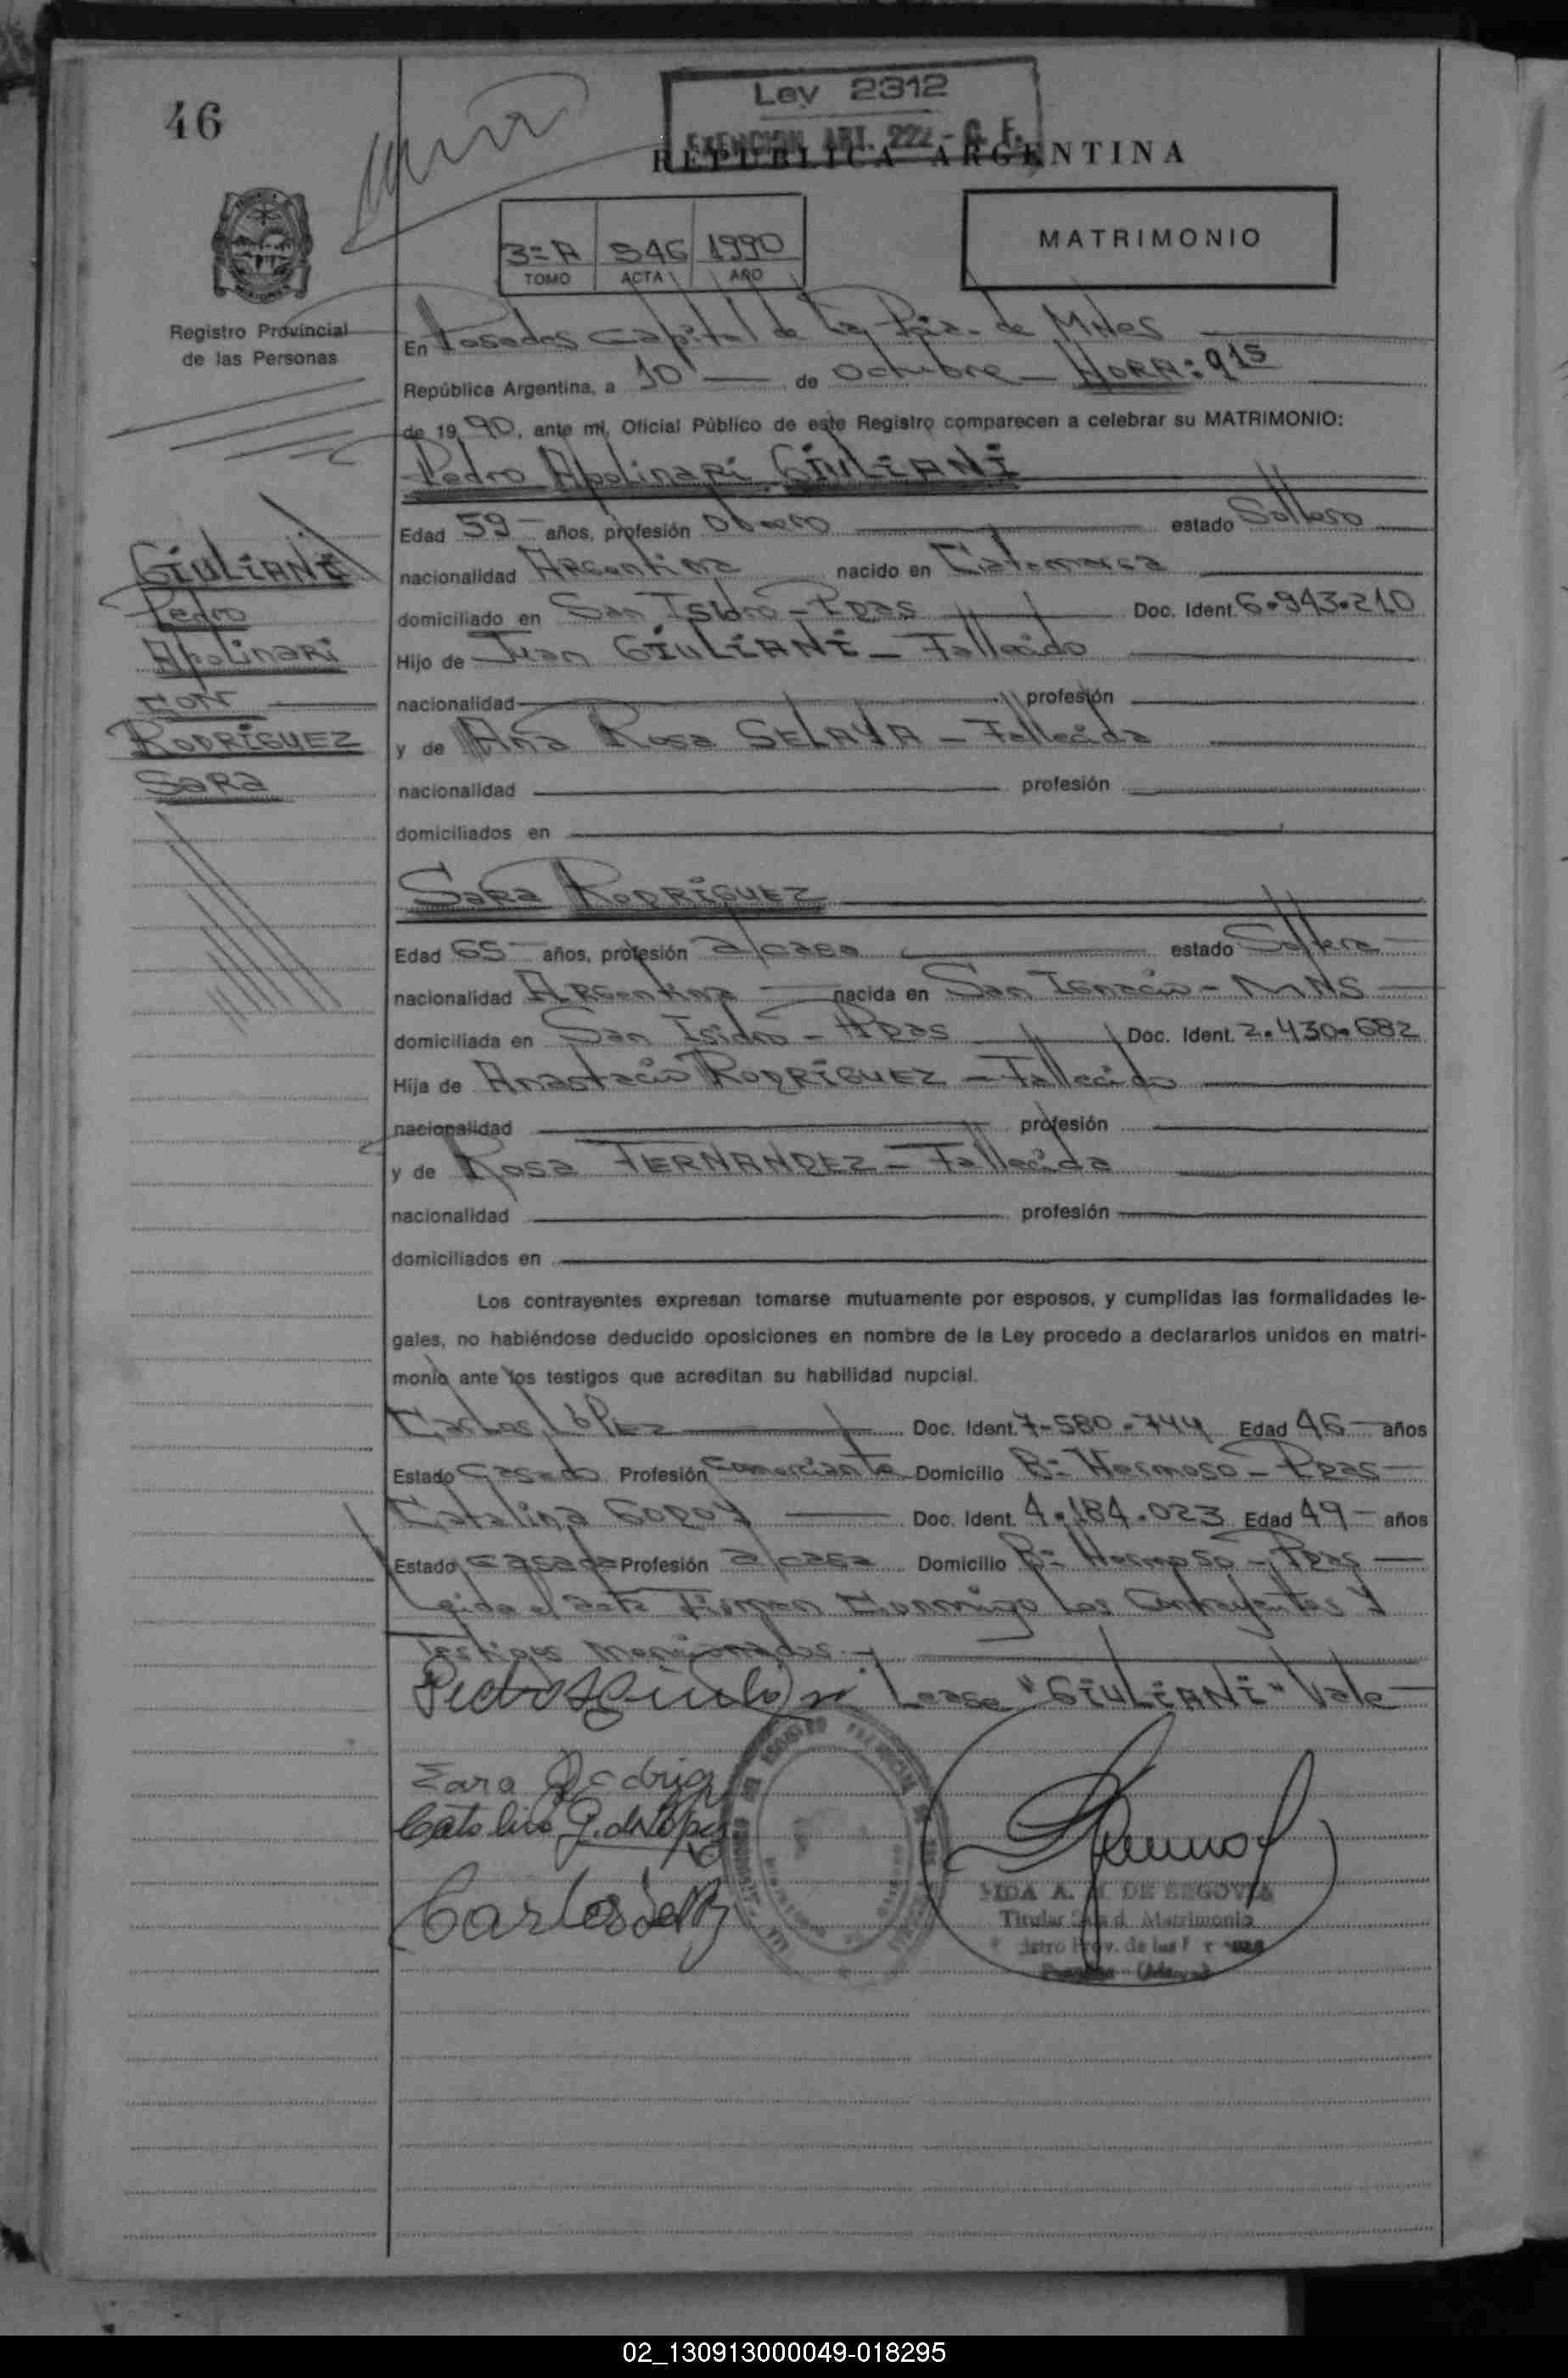 46
Ley 2312
EXENCION ART. 222 - C. F.
REPUBLICA ARGENTINA
3=A 546 1990
TOMO ACTA AÑO
MATRIMONIO
Registro Provincial
de las Personas
En Posadas Capital de la Pcia. de Mnes
República Argentina, a 10 de Octubre - HORA: 9 15
de 1990, ante mí, Oficial Público de este Registro comparecen a celebrar su MATRIMONIO:
Pedro Apolinari GIULIANI
Edad 59 años, profesión Obrero estado Soltero
nacionalidad Argentina nacido en Catamarca
domiciliado en San Isidro - Pdas Doc. Ident. 6.943.210
Hijo de Juan GIULIANI - Fallecido
nacionalidad profesión
y de Ana Rosa SELAYA - Fallecida
nacionalidad profesión
domiciliados en
GIULIANI
Pedro
Apolinari
CON
RODRIGUEZ
Sara
Sara RODRIGUEZ
Edad 65 años, profesión a/casa estado Soltera
nacionalidad Argentina nacida en San Ignacio - MNS
domiciliada en San Isidro - Pdas Doc. Ident. 2.430.682
Hija de Anastacio RODRIGUEZ - Fallecido
nacionalidad profesión
y de Rosa FERNANDEZ - Fallecida
nacionalidad profesión
domiciliados en
Los contrayentes expresan tomarse mutuamente por esposos, y cumplidas las formalidades le-
gales, no habiéndose deducido oposiciones en nombre de la Ley procedo a declararlos unidos en matri-
monio ante los testigos que acreditan su habilidad nupcial.
Carlos López Doc. Ident. 7-580-744 Edad 46 años
Estado Casado Profesión Comerciante Domicilio Bº Hermoso - Pdas
Catalina GODOY Doc. Ident. 4.184.023 Edad 49 años
Estado Casada Profesión a/casa Domicilio Bº Hermoso - Pdas
Leida el acta Firman Conmigo los Contrayentes y
Testigos mencionados.
Lease "GIULIANI" Vale
Sara Rodrig
Catalina G. de López
Carlos
DE SEGOVIA
Titular Matrimonio
02_130913000049-018295